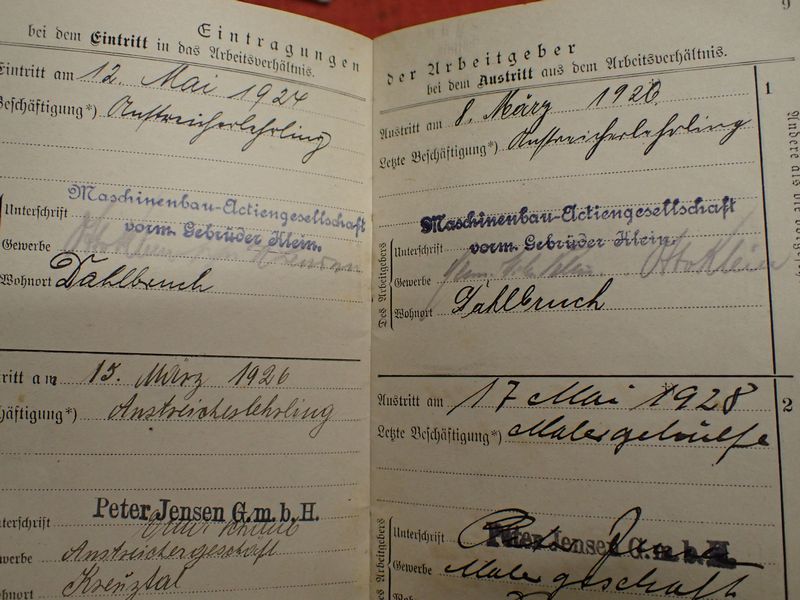 Eintragungen
bei dem Eintritt in das Arbeitsverhältnis.
Eintritt am 12. Mai 1924
Beschäftigung*) Anstreicherlehrling
Unterschrift
Maschinenbau-Actiengesellschaft
vorm. Gebrüder Klein.
Gewerbe
Wohnort Dahlbruch
ritt am 15. März 1926
häftigung*) Anstreicherlehrling
Peter Jensen G.m.b.H.
terschrift
werbe Anstreichergeschäft
Wohnort Kreuztal
9
der Arbeitgeber
bei dem Austritt aus dem Arbeitsverhältnis.
1
Austritt am 8. März 1926
Letzte Beschäftigung*) Anstreicherlehrling
Des Arbeitgebers
Unterschrift
Maschinenbau-Actiengesellschaft
vorm. Gebrüder Klein.
Otto Klein
Gewerbe
Wohnort Dahlbruch
2
Austritt am 17 Mai 1928
Letzte Beschäftigung*) Malergehülfe
Des Arbeitgebers
Unterschrift
Peter Jensen G.m.b.H.
Gewerbe Malergeschäft
Wohnort
Andere als die